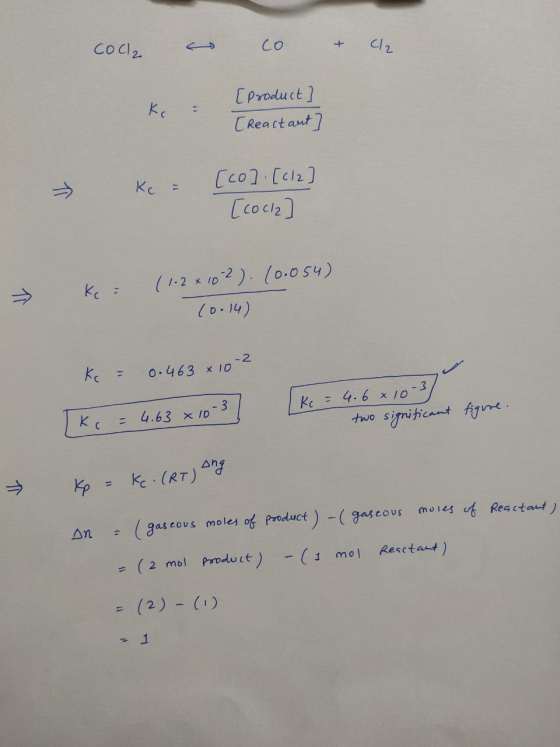 COCl₂ ↔ CO + Cl₂
Kc = [Product] / [Reactant]
⇒ Kc = [CO]·[Cl₂] / [COCl₂]
⇒ Kc = (1.2 × 10⁻²)·(0.054) / (0.14)
Kc = 0.463 × 10⁻²
Kc = 4.63 × 10⁻³ Kc = 4.6 × 10⁻³ ✓
two significant figure.
⇒ Kp = Kc·(RT)^Δng
Δn = (gaseous moles of product) - (gaseous moles of Reactant)
= (2 mol product) - (1 mol Reactant)
= (2) - (1)
= 1